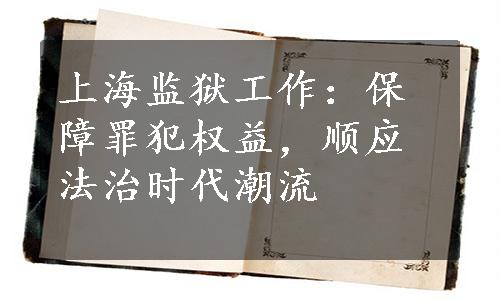 上海监狱工作：保
障罪犯权益，顺应
法治时代潮流